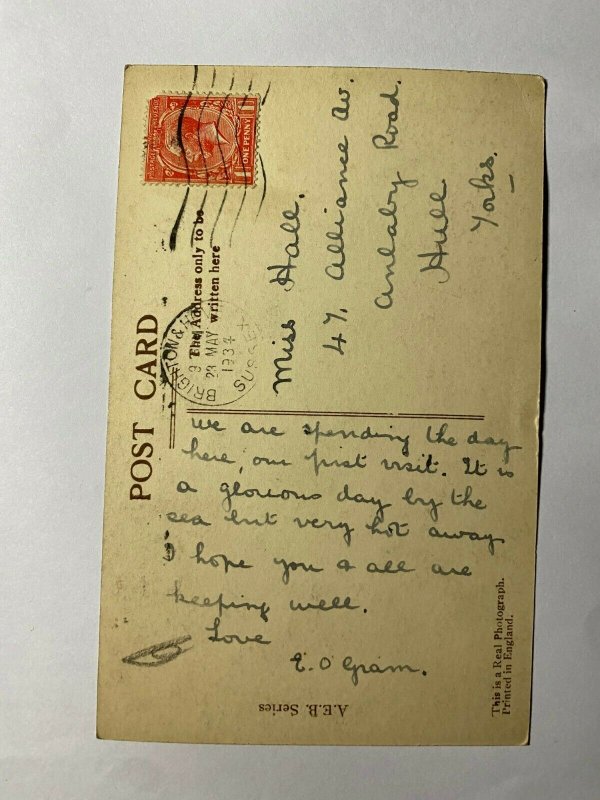 POST CARD
The Address only to be
written here
ONE PENNY
BRIGHTON & H
9
23 MAY
1934
SUSSEX
Miss Hall.
47, Alliance Av.
Anlaby Road.
Hull
Yorks.
We are spending the day
here, our first visit. It is
a glorious day by the
sea but very hot away
I hope you & all are
keeping well.
Love
E. O Gram.
A.E.B. Series
This is a Real Photograph.
Printed in England.